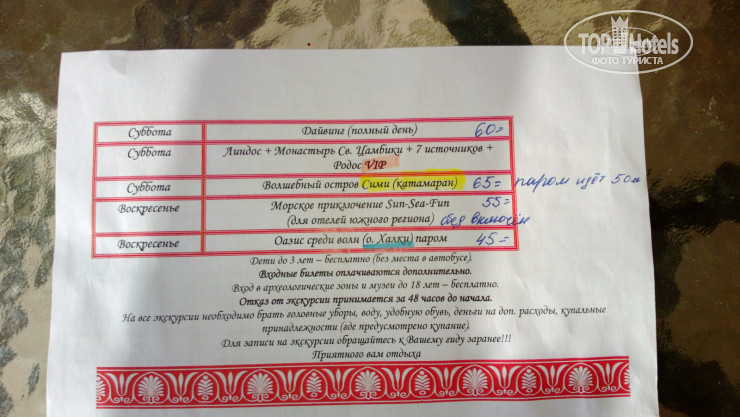 TOPHotels
ФОТО ТУРИСТА
Суббота Дайвинг (полный день) 60=
Суббота Линдос + Монастырь Св. Цамбики + 7 источников +
Родос VIP
Суббота Волшебный остров Сими (катамаран) 65= паром идёт 50м
Воскресенье Морское приключение Sun-Sea-Fun 55=
(для отелей южного региона) обед включён
Воскресенье Оазис среди волн (о. Халки) паром 45=
Дети до 3 лет – бесплатно (без места в автобусе).
Входные билеты оплачиваются дополнительно.
Вход в археологические зоны и музеи до 18 лет – бесплатно.
Отказ от экскурсии принимается за 48 часов до начала.
На все экскурсии необходимо брать головные уборы, воду, удобную обувь, деньги на доп. расходы, купальные
принадлежности (где предусмотрено купание).
Для записи на экскурсии обращайтесь к Вашему гиду заранее!!!
Приятного вам отдыха